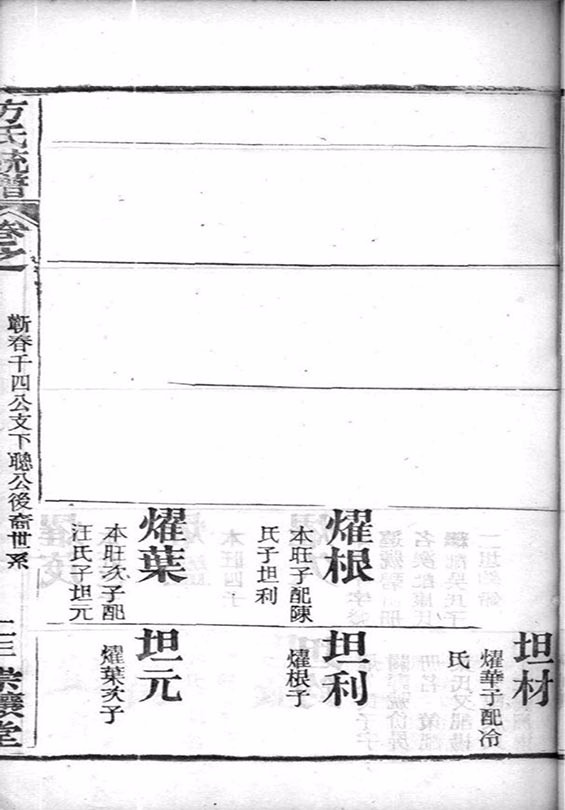 坦材
燿華子配冷
氏
燿根
本旺子配陳
氏子坦利
坦利
燿根子
燿葉
本旺次子配
汪氏子坦元
坦元
燿葉次子
方氏統譜
卷之
蘄春千四公文下聰公後裔世系
二三
崇讓堂